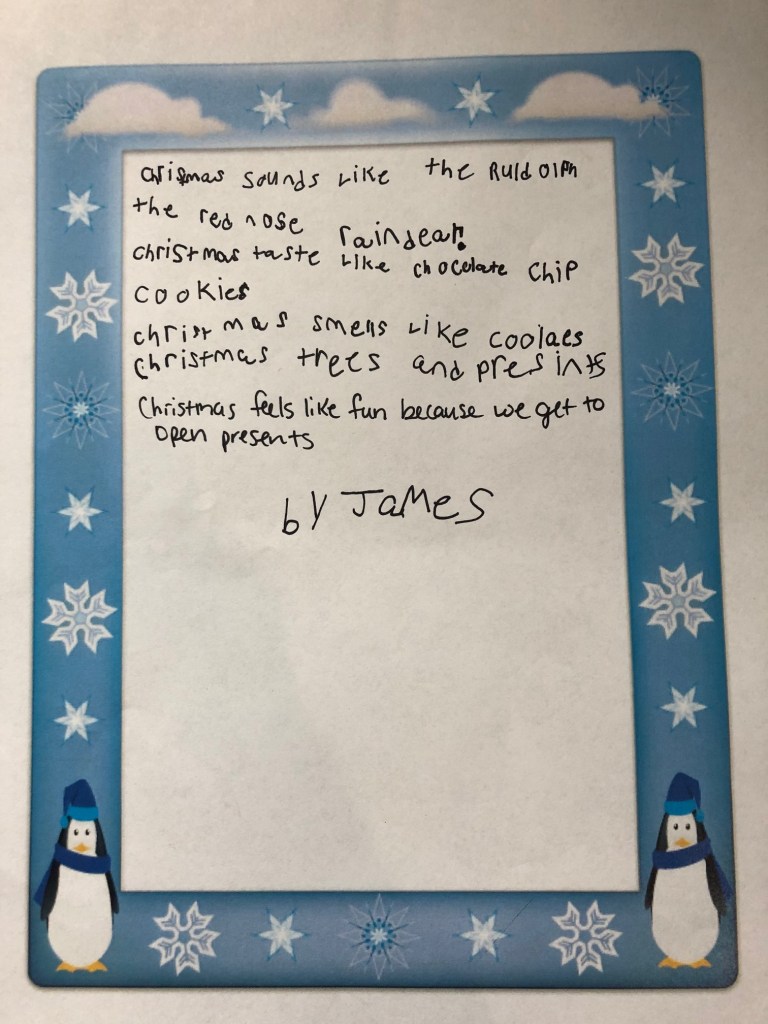 chrismas sounds Like the Ruldolph
the red nose raindear!
christmas taste Like chocolate chip
cookies
christmas smells Like coolaes
christmas trees and presints
Christmas feels like fun because we get to
open presents
by James